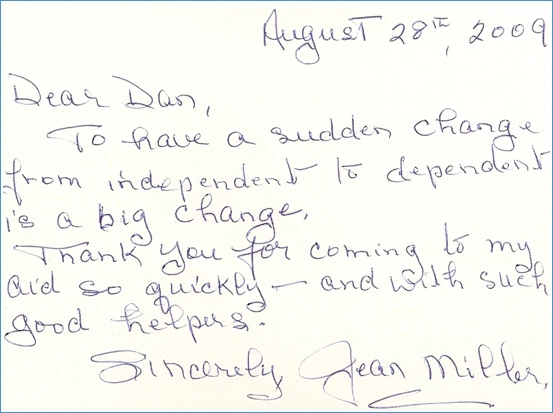 August 28th, 2009
Dear Dan,
To have a sudden change
from independent to dependent
is a big change.
Thank you for coming to my
aid so quickly — and with such
good helpers.
Sincerely Jean Miller,